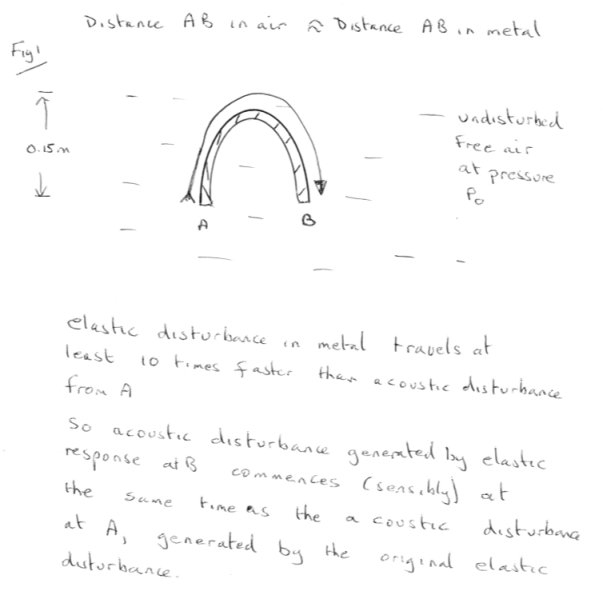 Distance AB in air ≈ Distance AB in metal
Fig 1
0.15m
undisturbed
free air
at pressure
P₀
A
B
elastic disturbance in metal travels at
least 10 times faster than acoustic disturbance
from A
So acoustic disturbance generated by elastic
response at B commences (sensibly) at
the same time as the acoustic disturbance
at A, generated by the original elastic
disturbance.